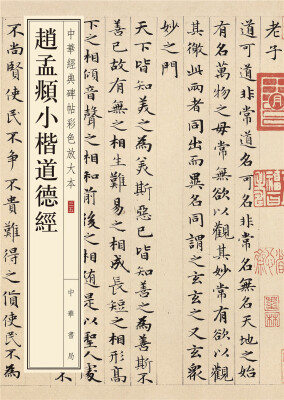 老子
道可道非常道名可名非常名無名天地之始
有名萬物之母常無欲以觀其妙常有欲以觀
其徼此兩者同出而異名同謂之玄玄之又玄眾
妙之門
天下皆知美之為美斯惡已皆知善之為善斯不
善已故有無之相生難易之相成長短之相形高
下之相傾音聲之相和前後之相隨是以聖人處
中華經典碑帖彩色放大本
趙孟頫小楷道德經
中華書局
不尚賢使民不爭不貴難得之貨使民不為